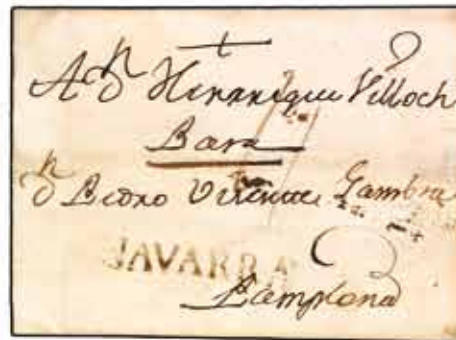 A Dn Henrrique Villoch
Bara
Dn Pedro Gambra
NAVARRA
Pamplona